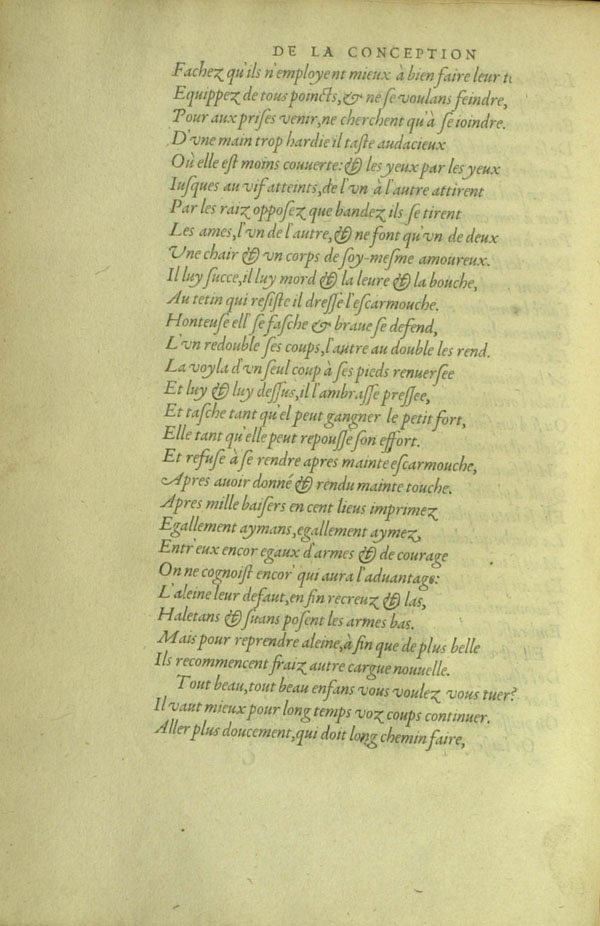 DE LA CONCEPTION
Fachez qu'ils n'employent mieux à bien faire leur
Equippez de tous poincts, & ne se voulans feindre,
Pour aux prises venir, ne cherchent qu'à se ioindre.
D'vne main trop hardie il taste audacieux
Où elle est moins couuerte: & les yeux par les yeux
Iusques au vif atteints, de l'vn à l'autre attirent
Par les raiz opposez que bandez ils se tirent
Les ames, l'vn de l'autre, & ne font qu'vn de deux
Vne chair & vn corps de soy-mesme amoureux.
Il luy succe, il luy mord & la leure & la bouche,
Au tetin qui resiste il dresse l'escarmouche.
Honteuse ell' se fasche & braue se defend,
L'vn redouble ses coups, l'autre au double les rend.
La voyla d'vn seul coup à ses pieds renuersee
Et luy & luy dessus, il l'ambrasse pressee,
Et tasche tant qu'el peut gangner le petit fort,
Elle tant qu'elle peut repousse son effort.
Et refuse à se rendre apres mainte escarmouche,
Apres auoir donné & rendu mainte touche.
Apres mille baisers en cent lieus imprimez
Egallement aymans, egallement aymez,
Entr'eux encor egaux d'armes & de courage
On ne cognoist encor' qui aura l'aduantage:
L'aleine leur defaut, en fin recreuz & las,
Haletans & suans posent les armes bas.
Mais pour reprendre aleine, à fin que de plus belle
Ils recommencent fraiz autre cargue nouuelle.
Tout beau, tout beau enfans vous voulez vous tuer?
Il vaut mieux pour long temps voz coups continuer.
Aller plus doucement, qui doit long chemin faire,